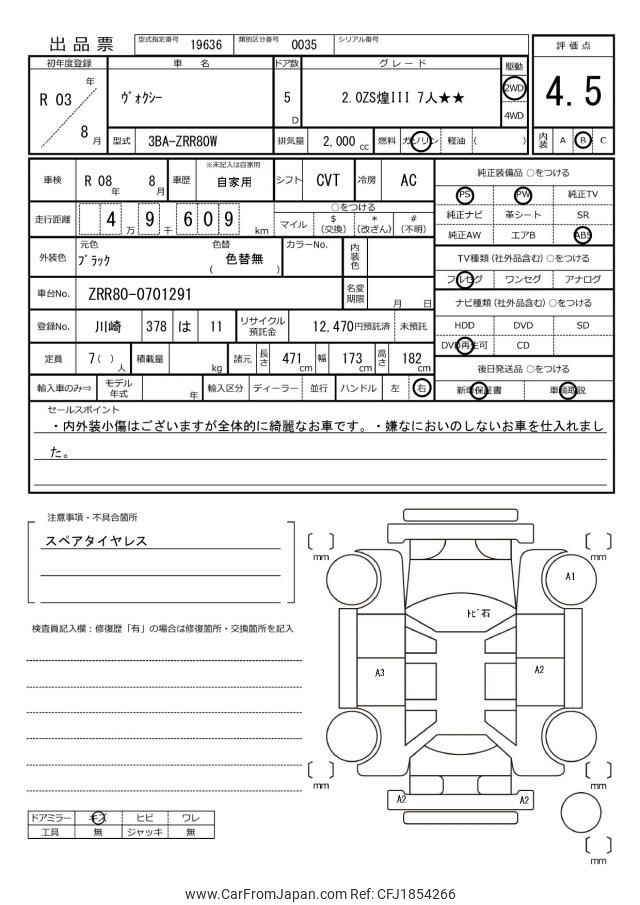 出品票
型式指定番号 19636 類別区分番号 0035 シリアル番号
評価点
4.5
内装 A B C
初年度登録 車名 ドア数 グレード 駆動
R 03 年 8 月
ヴォクシー
5 D
2.0ZS煌III 7人★★
2WD
4WD
型式 3BA-ZRR80W 排気量 2,000 cc 燃料 ガソリン 軽油 ( )
車検 R 08 年 8 月 車歴 ※未記入は自家用 自家用 シフト CVT 冷房 AC
走行距離 4 万 9 千 6 0 9 km
○をつける
マイル $ (交換) * (改ざん) # (不明)
外装色 元色 ブラック 色替 ( 色替無 ) カラーNo. 内装色
車台No. ZRR80-0701291 名変期限 月 日
登録No. 川崎 378 は 11 リサイクル預託金 12,470円預託済 未預託
定員 7( ) 人 積載量 kg 諸元 長さ 471 cm 幅 173 cm 高さ 182 cm
輸入車のみ⇒ モデル年式 年 輸入区分 ディーラー 並行 ハンドル 左 右
純正装備品 ○をつける
PS PW 純正TV
純正ナビ 革シート SR
純正AW エアB ABS
TV種類 (社外品含む) ○をつける
フルセグ ワンセグ アナログ
ナビ種類 (社外品含む) ○をつける
HDD DVD SD
DVD再生可 CD
後日発送品 ○をつける
新車保証書 車輌取説
セールスポイント
・内外装小傷はございますが全体的に綺麗なお車です。・嫌なにおいのしないお車を仕入れまし
た。
注意事項・不具合箇所
スペアタイヤレス
検査員記入欄：修復歴「有」の場合は修復箇所・交換箇所を記入
mm
mm
A1
トビ石
A3
A2
mm
mm
A2
A2
mm
ドアミラー キズ ヒビ ワレ
工具 無 ジャッキ 無
www.CarFromJapan.com Ref: CFJ1854266